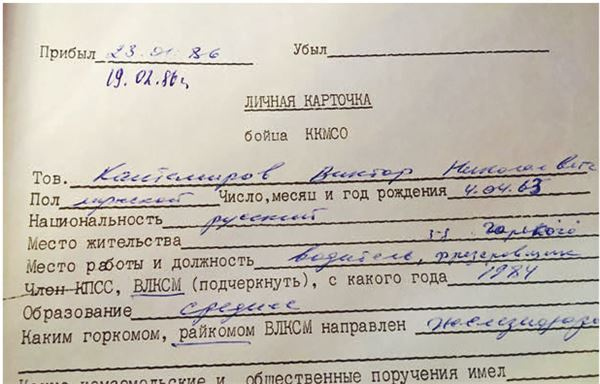 Прибыл 23.01.86 Убыл
19.02.86г.
ЛИЧНАЯ КАРТОЧКА
бойца ККМСО
Тов. Кантемиров Виктор Николаевич
Пол мужской Число,месяц и год рождения 4.04.63
Национальность русский
Место жительства Горького
Место работы и должность водитель, фрезеровщик
Член КПСС, ВЛКСМ (подчеркнуть), с какого года 1984
Образование среднее
Каким горкомом, райкомом ВЛКСМ направлен
Какие комсомольские и общественные поручения имел